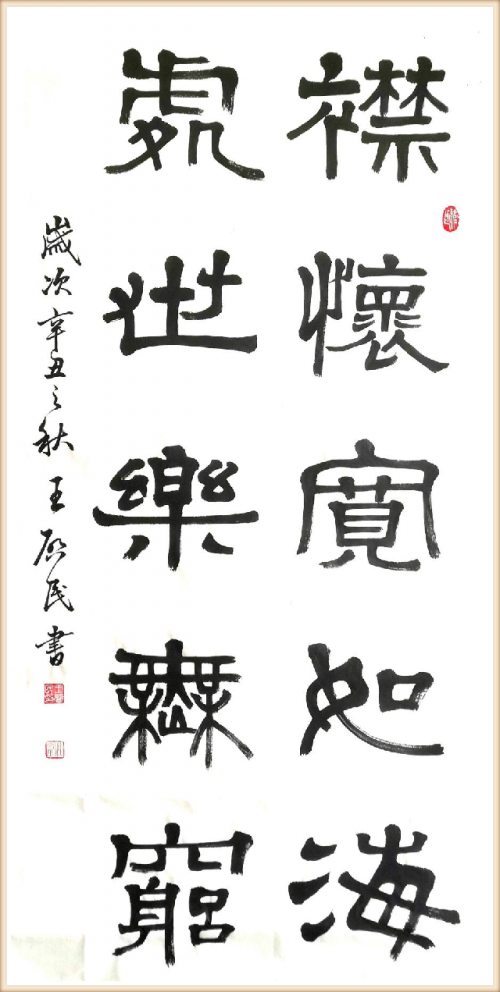 襟懷寬如海
處世樂無竆
歲次辛丑之秋 王 民書